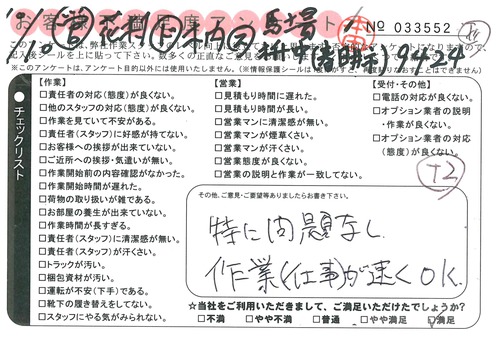 お客様満足度アンケート
本
№ 033552
馬場
9424
このアンケートは、弊社作業スタッフの
出入後シールを上に貼って下さい。数多くの率直なご意見を
※このアンケートは、アンケート目的以外には使用いたしません。（※情報保護シールは
チェックリスト
【作業】
□責任者の対応（態度）が良くない。
□他のスタッフの対応（態度）が良くない。
□作業を見ていて不安がある。
□責任者（スタッフ）に好感が持てない。
□お客様への挨拶が出来ていない。
□ご近所への挨拶・気遣いが無い。
□作業開始前の内容確認がなかった。
□作業開始時間が遅れた。
□荷物の取り扱いが雑である。
□お部屋の養生が出来ていない。
□作業時間が長すぎる。
□責任者（スタッフ）に清潔感が無い。
□責任者（スタッフ）が汗くさい。
□トラックが汚い。
□梱包資材が汚い。
□運転が不安（下手）である。
□靴下の履き替えをしてない。
□スタッフにやる気がみられない。
【営業】
□見積もり時間に遅れた。
□見積もり時間が長い。
□営業マンに清潔感が無い。
□営業マンが煙草くさい。
□営業マンが汗くさい。
□営業態度が良くない。
□営業の説明と作業が一致してない。
【受付・その他】
□電話の対応が良くない。
□オプション業者の説明
・作業が良くない。
□オプション業者の対応
（態度）が良くない。
+2
その他、ご意見・ご要望等ありましたらお書き下さい。
特に問題なし
作業(仕事)が速くOK.
☆当社をご利用いただきまして、ご満足いただけたでしょうか？
□不満 □やや不満 □普通 □やや満足 □満足